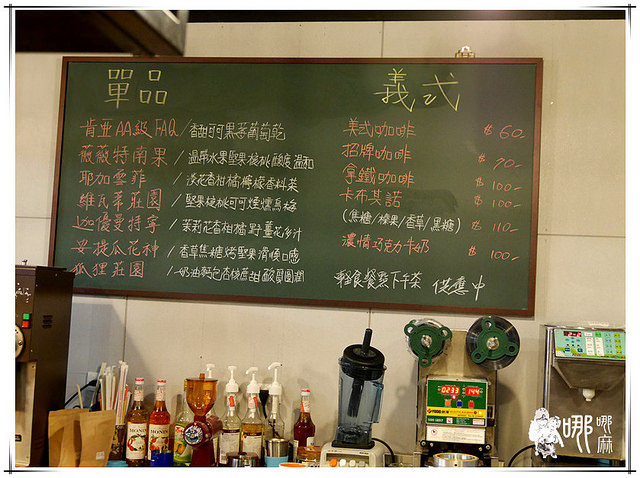 單品
肯亞AA級 FAQ/香甜可可黑莓葡萄乾
薇薇特南果/溫帶水果堅果核桃酸度溫和
耶加雪菲/淡花香柑橘檸檬香料茶
維瓦第莊園/堅果核桃可可煙燻烏梅
迦優曼特寧/茉莉花香柑橘野薑花多汁
安提瓜花神/香草焦糖烤堅果滑順口感
狐狸莊園/奶油麵包杏桃蔗甜酸質圓潤
義式
美式咖啡 $60-
招牌咖啡 $70-
拿鐵咖啡 $100-
卡布其諾 $100-
(焦糖/榛果/香草/黑糖) $110-
濃情巧克力牛奶 $100-
輕食餐點下午茶 供應中
MONIN
MONIN
0233 144
哪哪麻